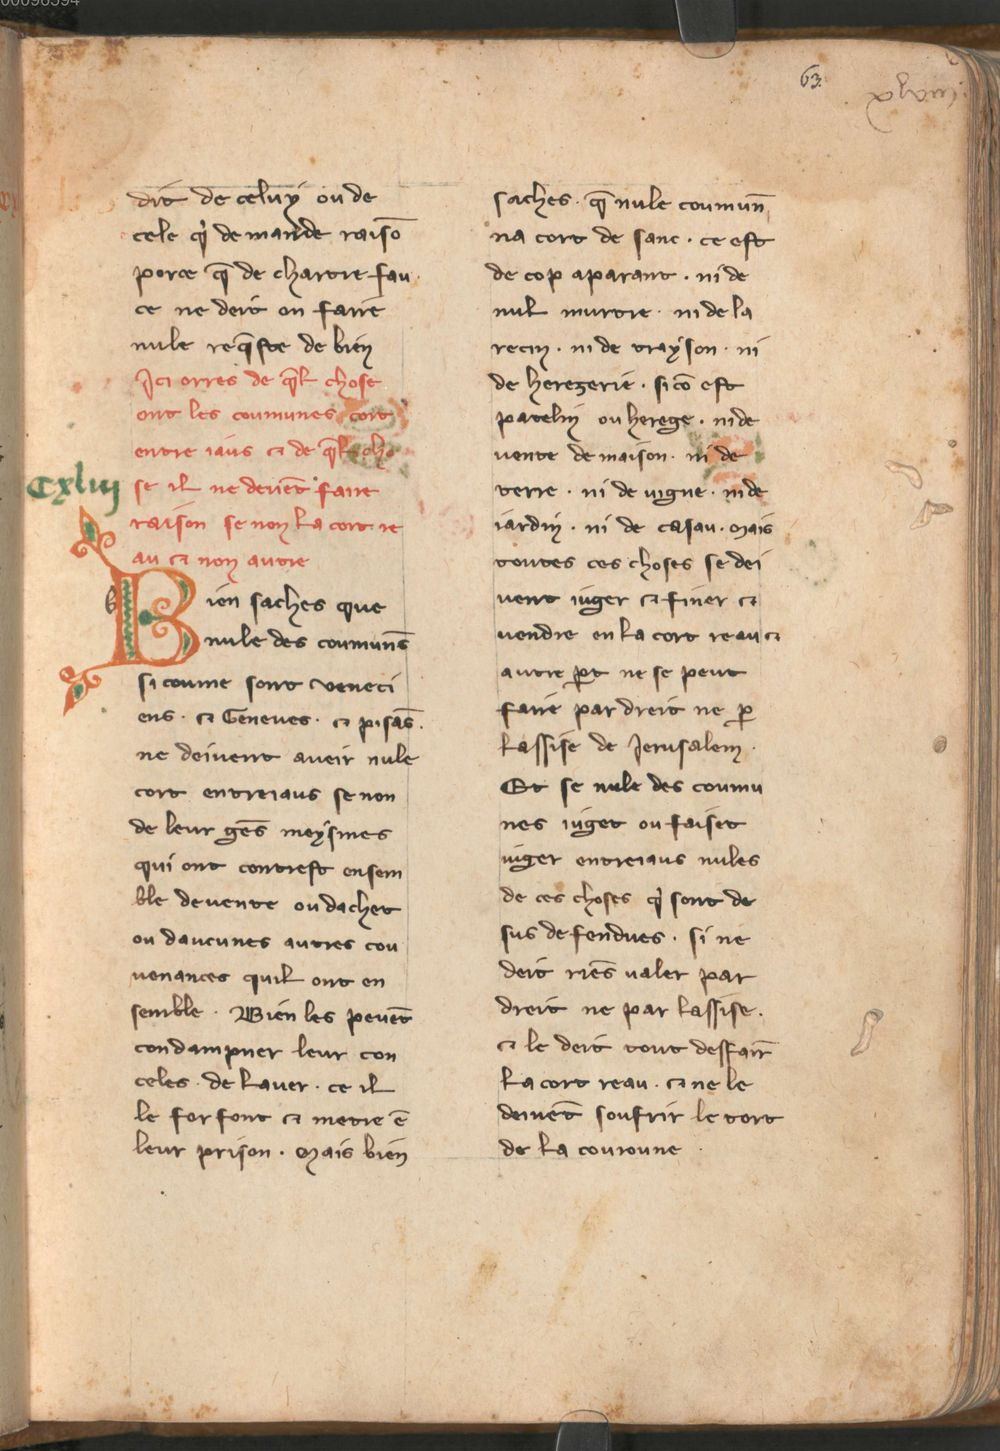 63
xlviii
dit de celuy ou de
cele q̇ demande raisō
porce q̄ de chartre fau
ce ne deit on faire
nule req̄ste de bien
Ici orres de q̄l chose
ont les coumunes cort
entre iaus ⁊ de q̄l cho
se il ne deuēt faire
raison se non la cort re
au ⁊ non autre
Cxliij
Bien saches que
nule des coumun̄s
si coume sont veneci
ens · ⁊ Geneues · ⁊ pisās ·
ne deiuent aueir nule
cort entreiaus se non
de leur gēs meysmes
qui ont contrest ensem
ble deuente ou dachet
ou daucunes autres cou
uenances quil ont en
semble · Bien les peuēt
condampner leur con
celes · de lauer · ce il
le forfont ⁊ metre ē
leur prison · Mais bien
saches · q̄ nule coumun̄
na cort de sanc · ce est
de cop aparant · ni de
nul murtre · ni de la
recin · ni de trayson · ni
de herezerie · si cō est
patelin ou herege · ni de
uente de maison · ni de
terre · ni de uigne · ni de
iardin · ni de casau · Mais
toutes ces choses se dei
uent iuger ⁊ finer ⁊
uendre en la cort reau ⁊
autre ꝑt ne se peut
faire par dreit ne ꝑ
lassise de Jerusalem ·
Et se nule des coumu
nes iuget ou faiset
iuger entreiaus nules
de ces choses q̇ sont de
sus defendues · si ne
deit riēs ualer par
dreit ne par lassise ·
⁊ le deit tout desfair̄
la cort reau · ⁊ ne le
deiuēt soufrir le tort
de la couroune ·